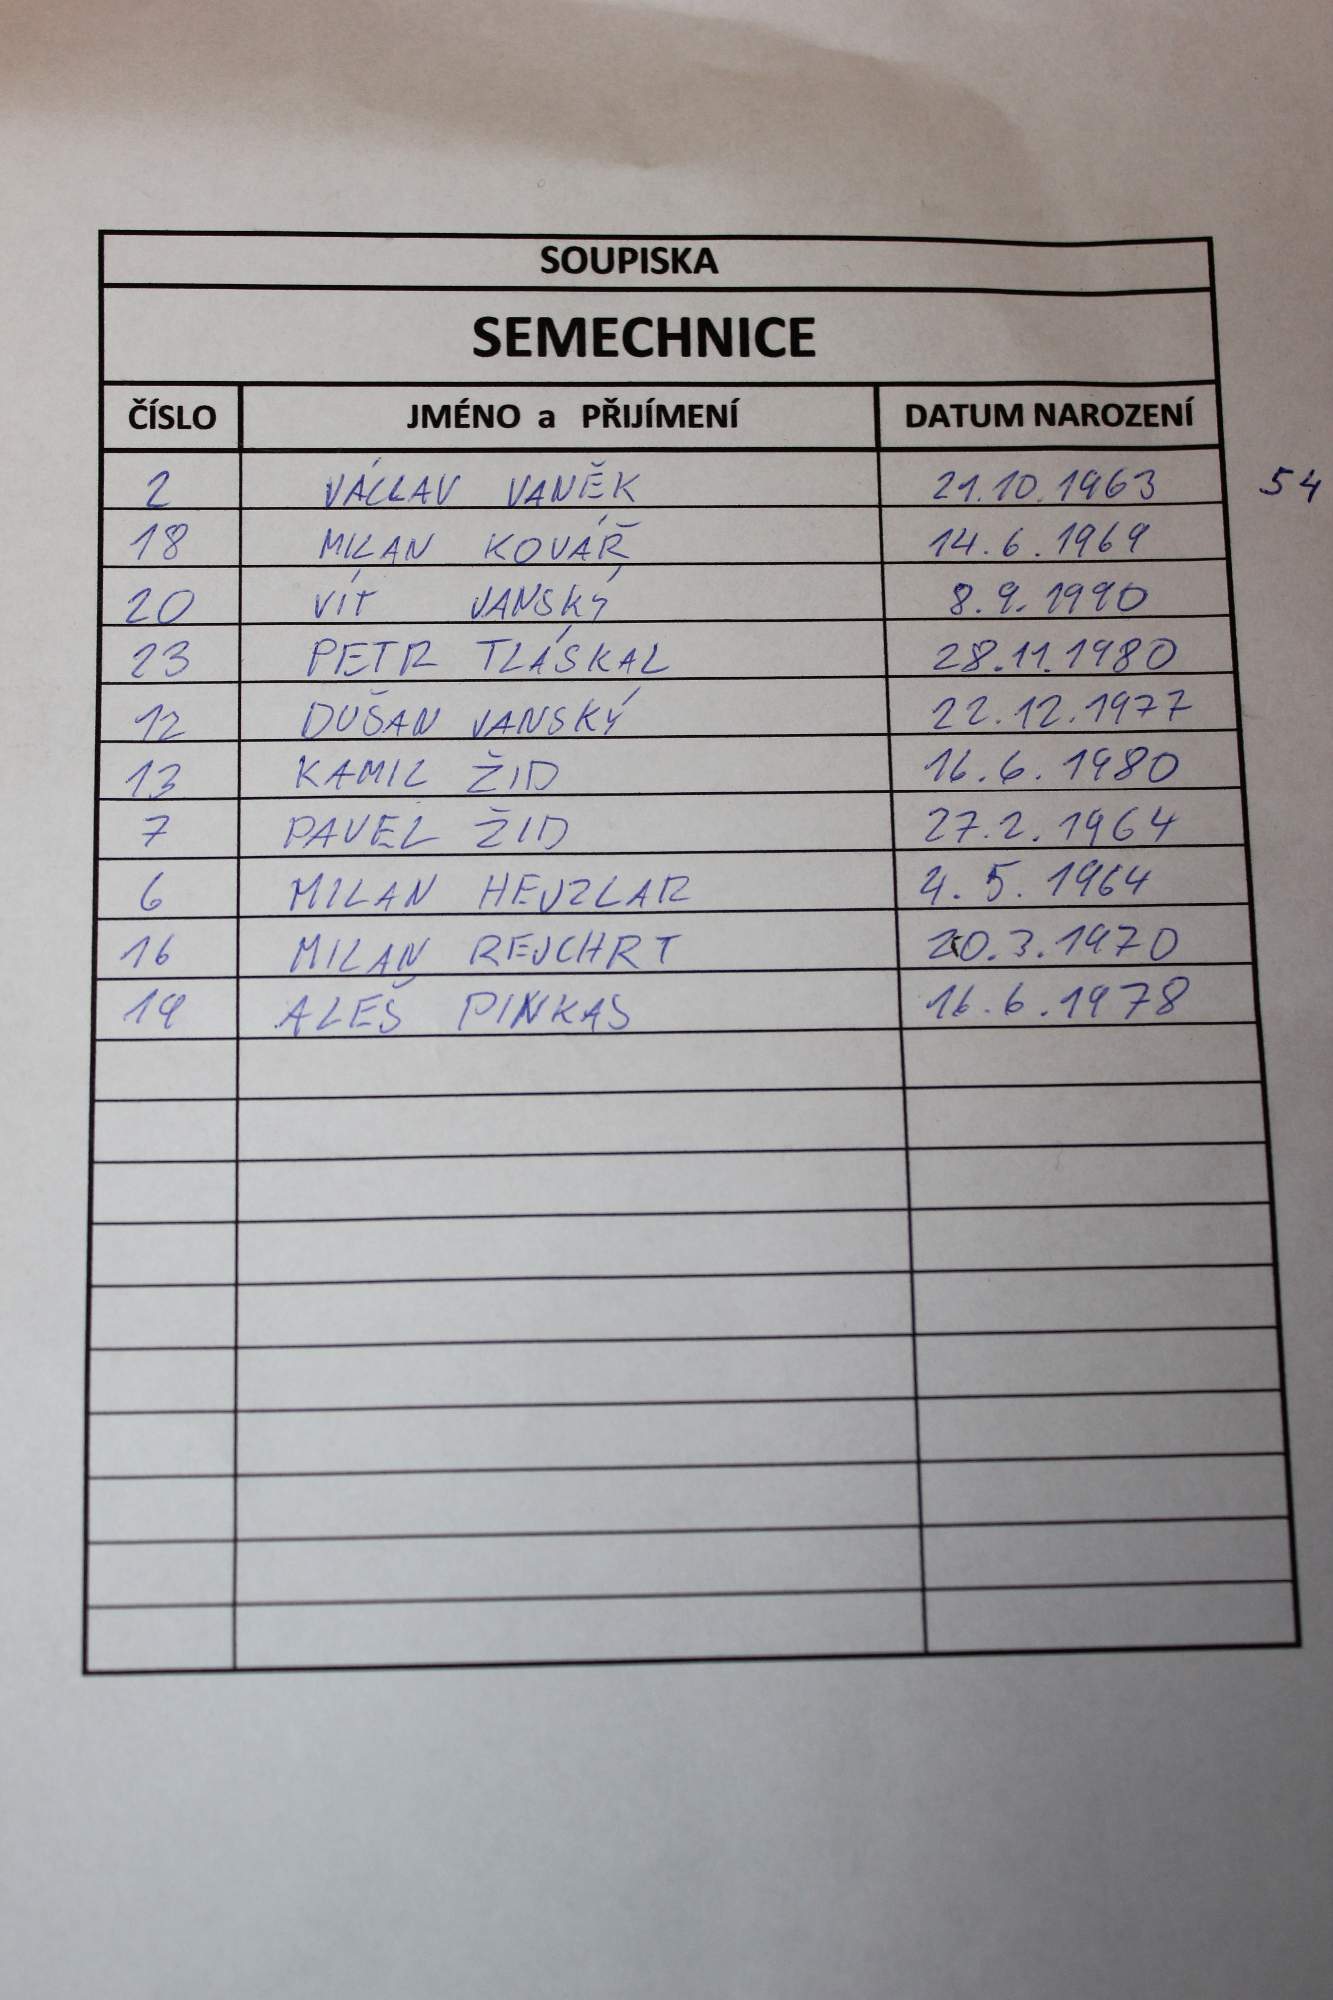 SOUPISKA
SEMECHNICE
ČÍSLO JMÉNO a PŘIJÍMENÍ DATUM NAROZENÍ
2 VÁCLAV VANĚK 21.10.1963 54
18 MILAN KOVÁŘ 14.6.1969
20 VÍT JANSKÝ 8.9.1990
23 PETR TLÁSKAL 28.11.1980
12 DUŠAN JANSKÝ 22.12.1977
13 KAMIL ŽID 16.6.1980
7 PAVEL ŽID 27.2.1964
6 MILAN HEJZLAR 4.5.1964
16 MILAN REJCHRT 20.3.1970
19 ALEŠ PINKAS 16.6.1978